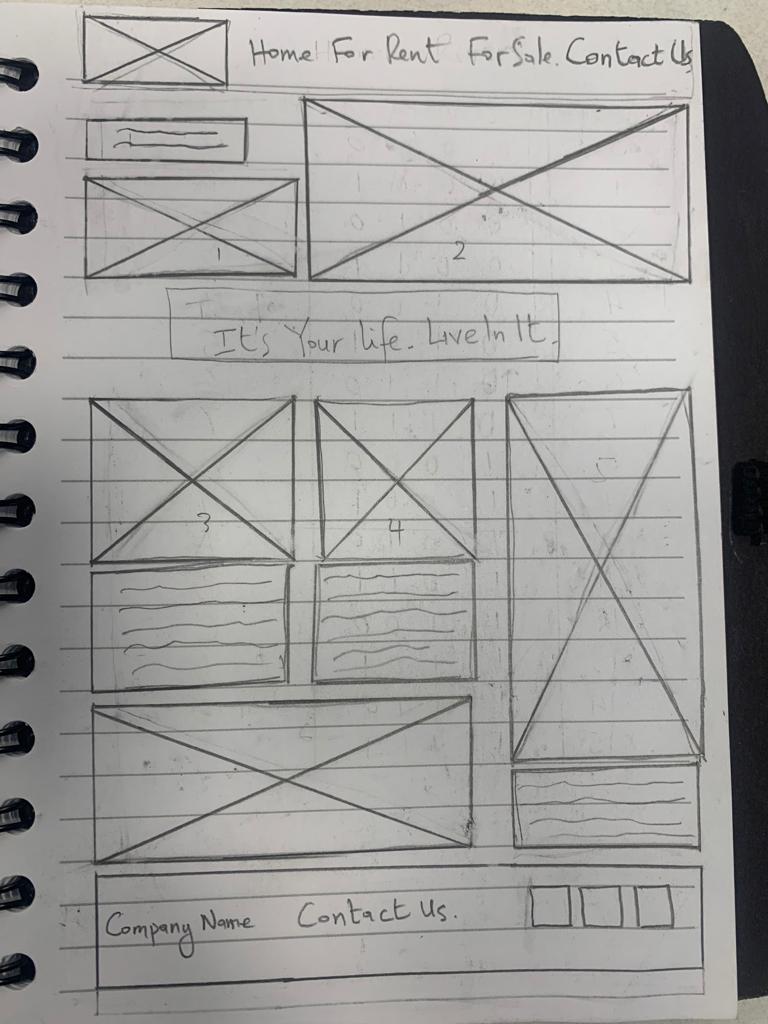 Home For Rent For Sale. Contact Us
1
2
It's Your life. Live In It.
3
4
5
Company Name Contact Us.